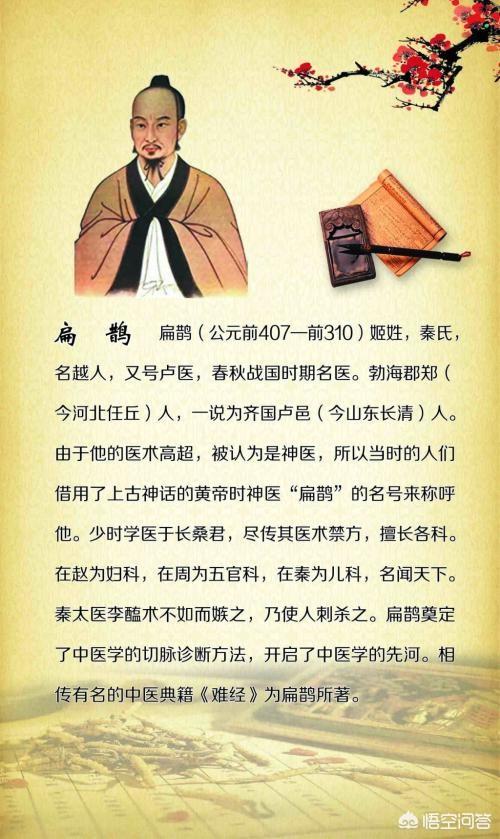 扁 鹊 扁鹊（公元前407—前310）姬姓，秦氏，
名越人，又号卢医，春秋战国时期名医。勃海郡郑（
今河北任丘）人，一说为齐国卢邑（今山东长清）人。
由于他的医术高超，被认为是神医，所以当时的人们
借用了上古神话的黄帝时神医“扁鹊”的名号来称呼
他。少时学医于长桑君，尽传其医术禁方，擅长各科。
在赵为妇科，在周为五官科，在秦为儿科，名闻天下。
秦太医李醯术不如而嫉之，乃使人刺杀之。扁鹊奠定
了中医学的切脉诊断方法，开启了中医学的先河。相
传有名的中医典籍《难经》为扁鹊所著。
悟空问答